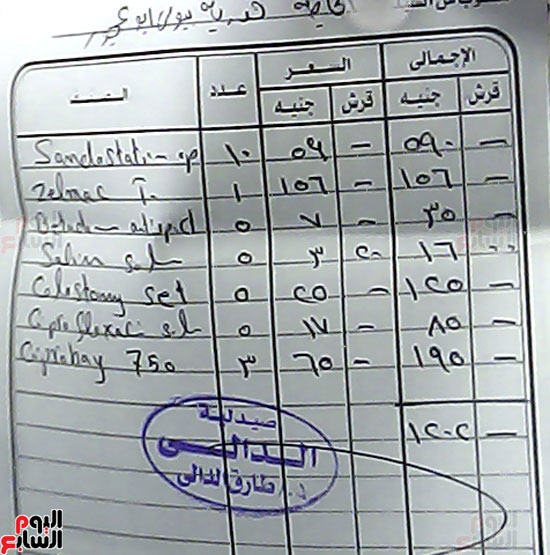 الصنف عدد السعر الإجمالى
جنيه قرش جنيه قرش
Sandostatin ap ١٠ ٥٩ — ٥٩٠ —
Zelmac T. ١ ١٥٦ — ١٥٦ —
٥ ٧ — ٣٥ —
Saline sol ٥ ٣ ٢٠ ١٦
Colostomy set ٥ ٢٥ — ١٢٥ —
Ciprofloxacin sol ٥ ١٧ — ٨٥ —
Ciprobay 750 ٣ ٦٥ — ١٩٥ —
١٢٠٢ —
صيدلية
الدالى
د. طارق الدالى
اليوم السابع